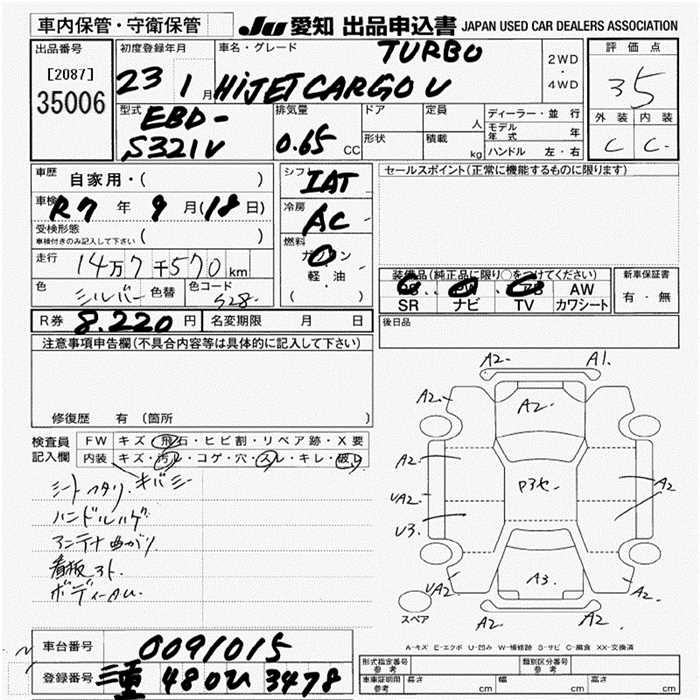 車内保管・守衛保管
JU 愛知 出品申込書 JAPAN USED CAR DEALERS ASSOCIATION
出品番号
[2087]
35006
初度登録年月
23 1月
車名・グレード
TURBO
HIJET CARGO
2WD
・
4WD
評価点
35
外装 内装
C C
型式
EBD-
S321V
排気量
0.65 CC
ドア
形状
定員
人
積載
kg
ディーラー・並行
モデル年式 年
ハンドル 左・右
車歴
自家用・( )
車検
R7年 9月(18日)
受検形態
車検付きのみ記入して下さい ( )
走行
14万7千570km
色
シルバー 色替
色コード
S28
シフト
IAT
冷房
AC
燃料
ガソリン
軽・油
( )
セールスポイント(正常に機能するものに限ります)
装備品(純正品に限り○をつけてください)
PS PW AW
SR ナビ TV カワシート
新車保証書
有・無
R券 8.220円
名変期限 月 日
後日品
注意事項申告欄(不具合内容等は具体的に記入して下さい)
修復歴 有(箇所
検査員
記入欄
FW キズ・飛石・ヒビ割・リペア跡・X要
内装 キズ・汚レ・コゲ・穴・スレ・キレ・破レ
シートヘタリ、キバミ
ハンドルハゲ
アンテナ曲がり
看板スト
A2 A1
A2 A2
A2 A2
UA2 P3セ
U3
A3
UA2 A2
A2 A2
スペア
A-キズ E-エクボ U-凹み W-補修跡 S-サビ C-腐食 XX-交換済
車台番号 0091015
登録番号 三重 480 ひ 3478
形式指定番号
参考
類別区分番号
参考
車車証明用
参考
長さ cm
幅 cm
高さ cm